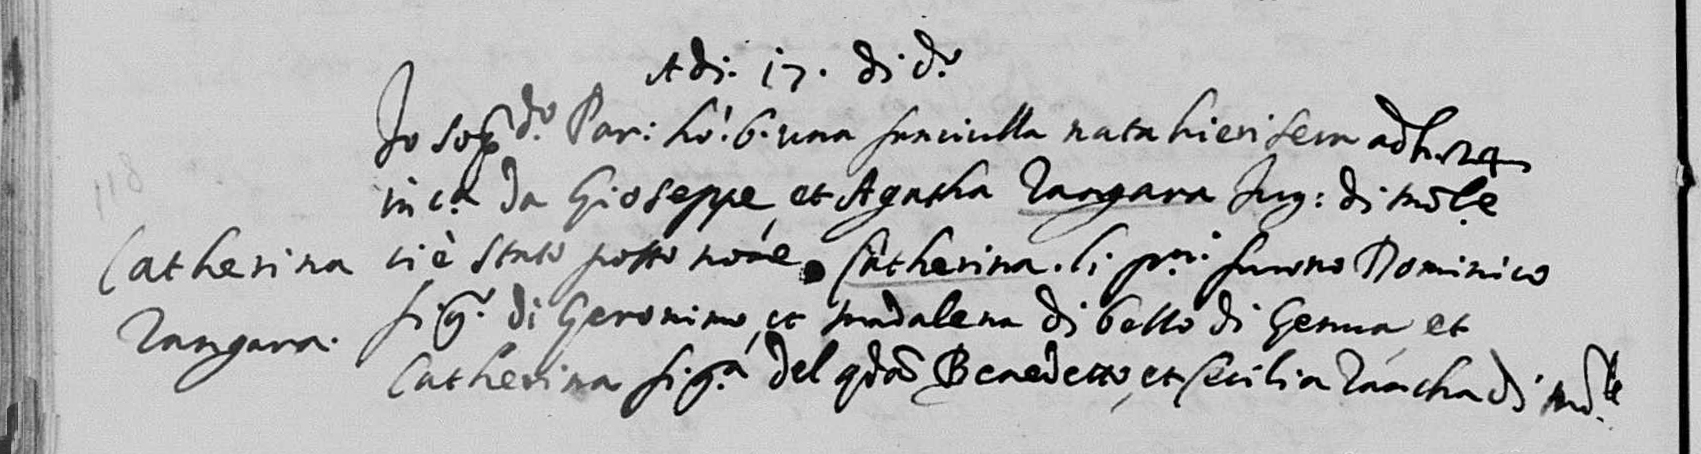 Adi. 17. di d.º
Io sop.ᵈº Par: hò b. una fanciulla nata hieri sera ad h. 24
in c.ª da Gioseppe, et Agatha Zangara Jug: di mõle
Catherina ci è stato posto nome Catherina. li pri.ⁿⁱ furono Dominico
Zangara. fig.º di Geronimo, et madalena di bello di Genua, et
Catherina fig.ª del qdã Benedetto, et Cecilia Zancha di mõle